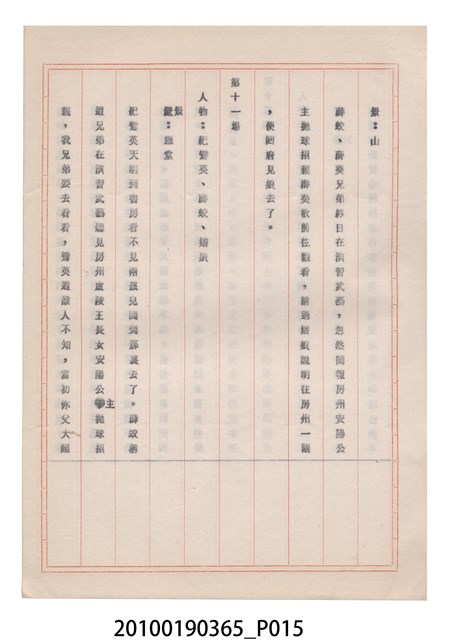 景：山
薛蛟、薛葵兄弟終日在演習武藝，忽然回報房州安陽公
主拋球招親薛葵歡喜往觀看，薛蛟 說明往房州一觀
，便回府見娘去了。
第十一場
人物：紀鸞英、薛蛟、
景：應堂
紀鸞英天明到書房看不見兩孩兒回到那裏去了。薛蛟稱
道兄弟在演習武藝聽見房州盧陵王長女安陽公主拋球招
親，我兄弟要去看看，鸞英道誰人不知，當初你父大鬧
20100190365_P015